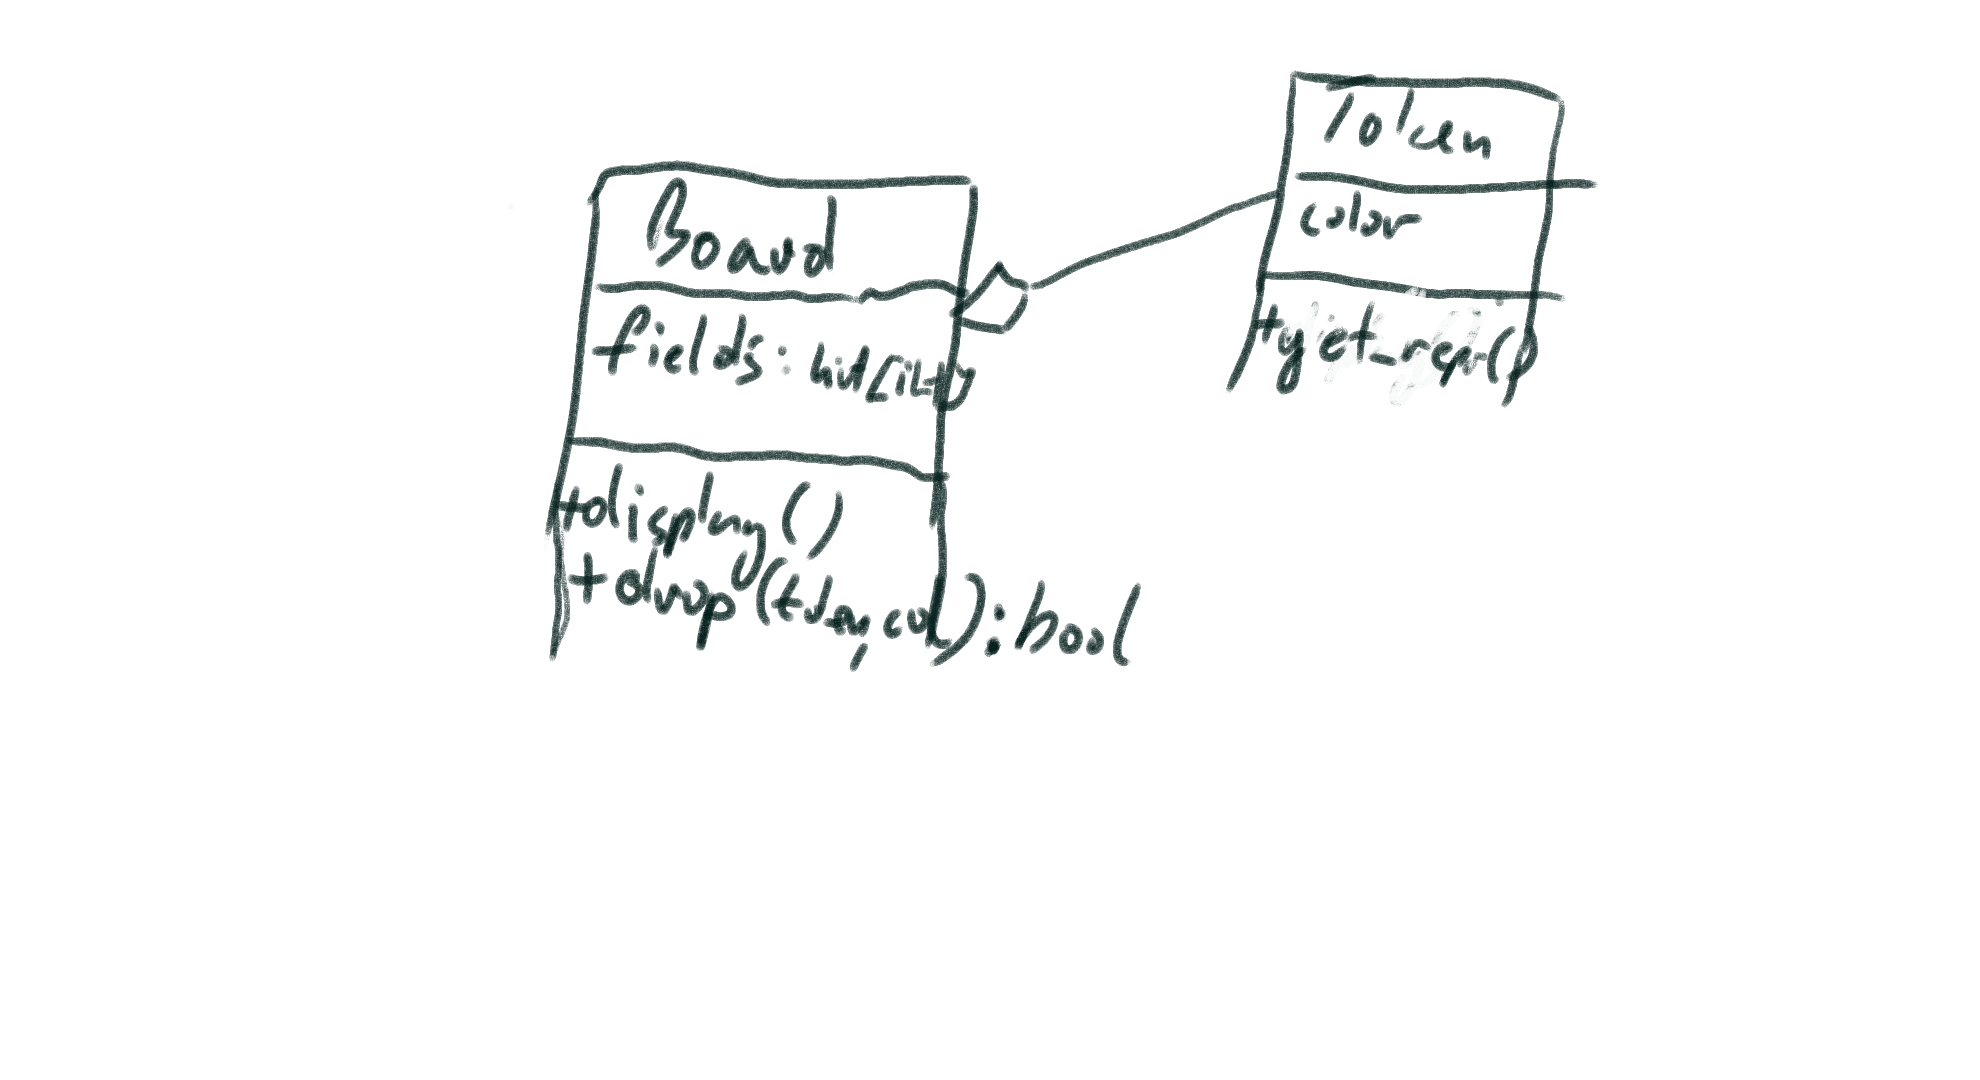 Board
fields: list[list]
+display()
+drop(token, col): bool
Token
color
+get_repr()